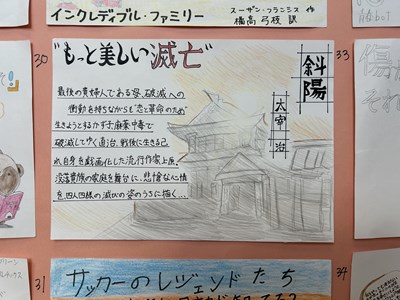 インクレディブル・ファミリー
スーザン・フランシス 作
橘高 弓枝 訳
30
33
"もっと美しい滅亡"
斜陽
太宰 治
最後の貴婦人である母、破滅への
衝動を持ちながらも"恋と革命のため"
生きようとするかず子、麻薬中毒で
破滅してゆく直治、戦後に生きる己
れ自身を戯画化した流行作家上原。
没落貴族の家庭を舞台に、悲愴な心情
を四人四様の滅びの姿のうちに描く…
傷
それ
31
34
サッカーのレジェンドたち